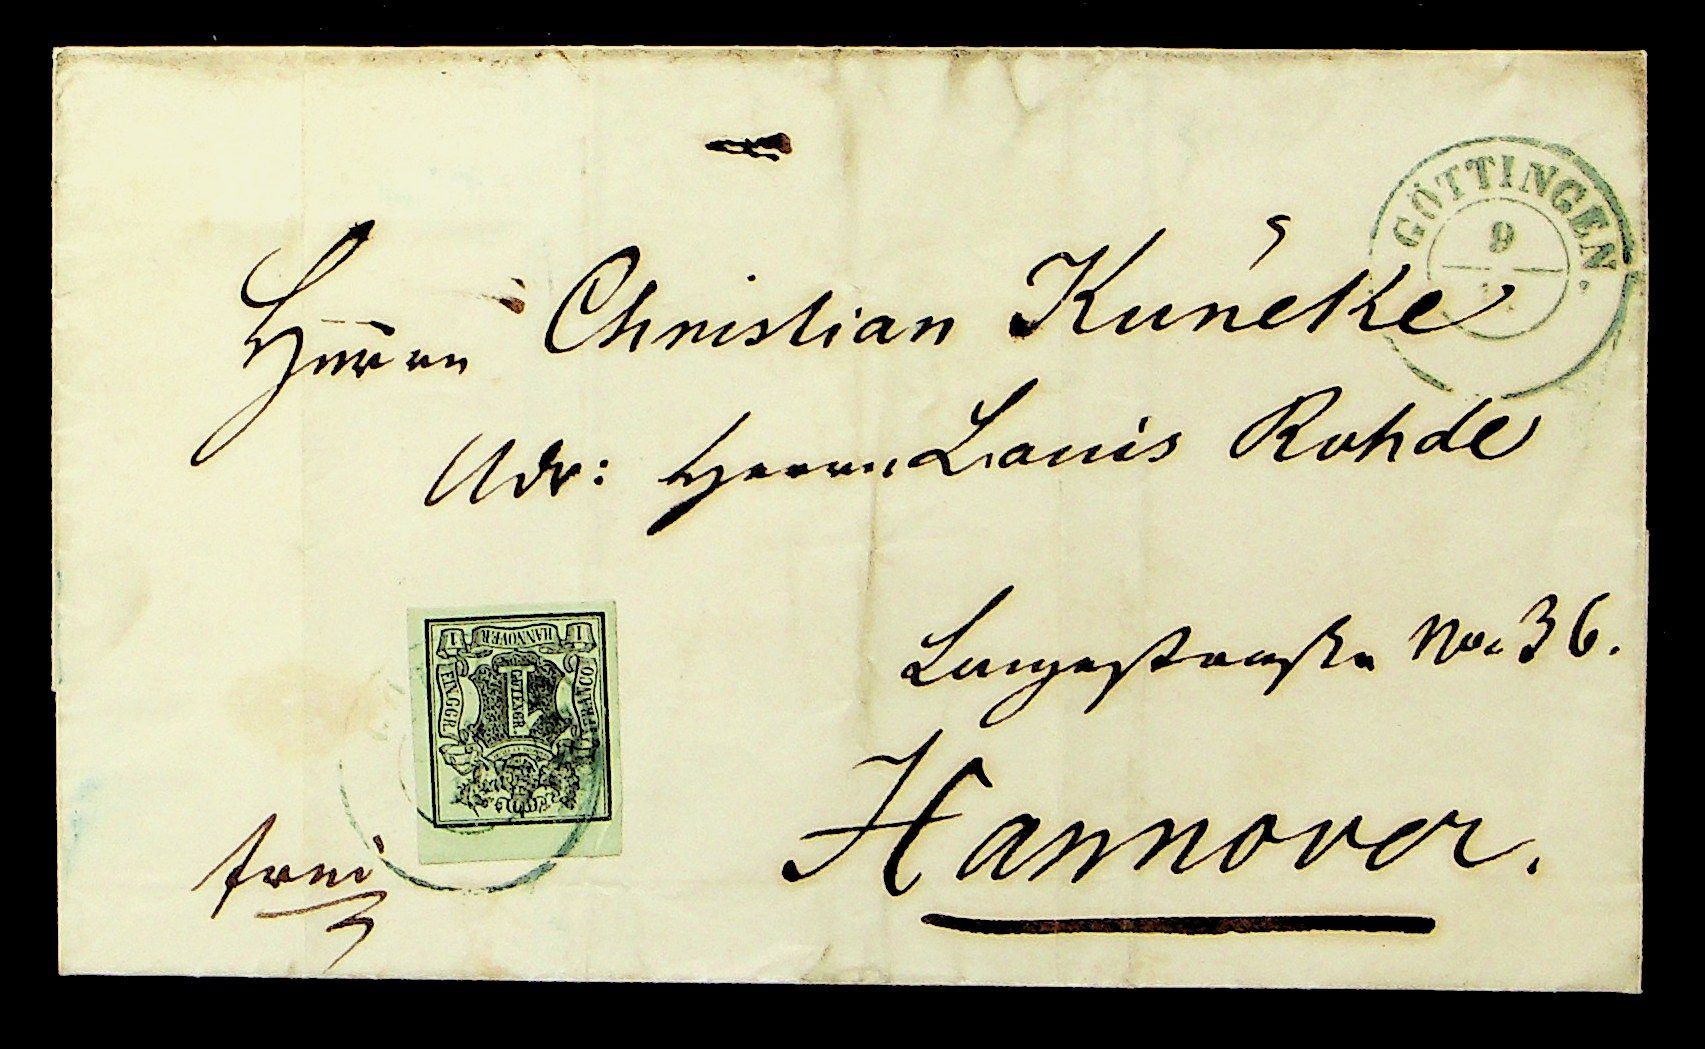 GÖTTINGEN.
9
Herrn Christian Küneke
Adr: Herrn Louis Rohde
Langestraße No. 36.
Hannover.
frei
HANNOVER
1 1
EIN GGR.
1
GUTENGR.